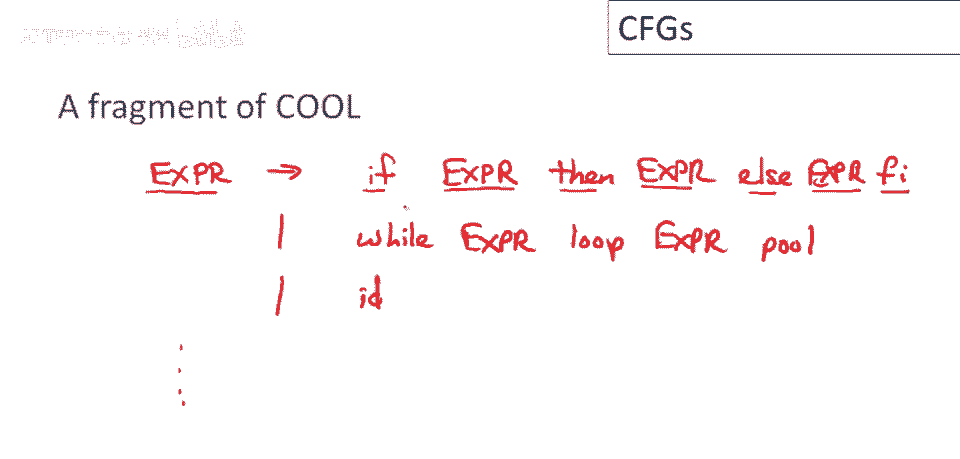 CFGs
A fragment of COOL
EXPR → if EXPR then EXPR else EXPR fi
| while EXPR loop EXPR pool
| id